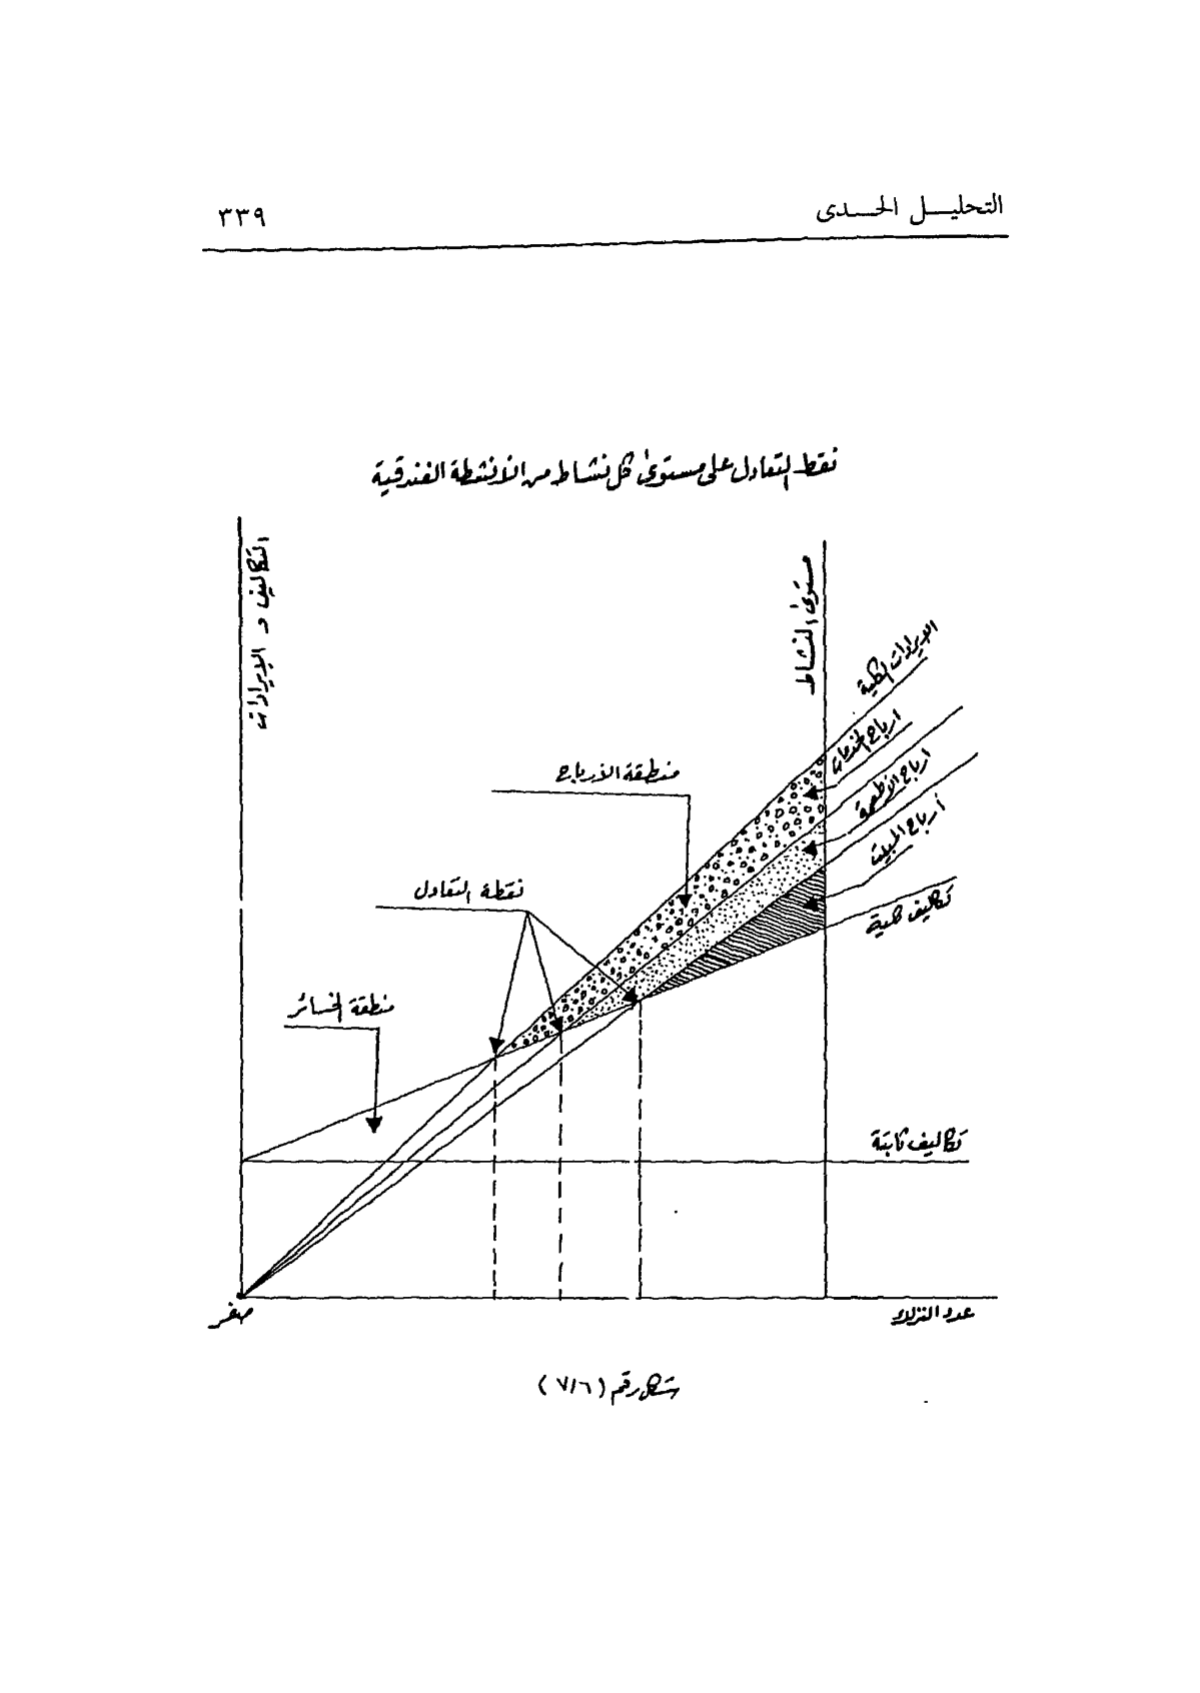 التحليل الحدى
٣٣٩
نقط التعادل على مستوى كل نشاط من الأنشطة الفندقية
التكاليف و الإيرادات
مستوى النشاط
الإيرادات الكلية
ارباح الخدمات
ارباح الأطعمة
أرباح المبيت
تكاليف كلية
منطقة الأرباح
نقطة التعادل
منطقة الخسائر
تكاليف ثابتة
صفر
عدد النزلاء
شكل رقم (٧/٦)